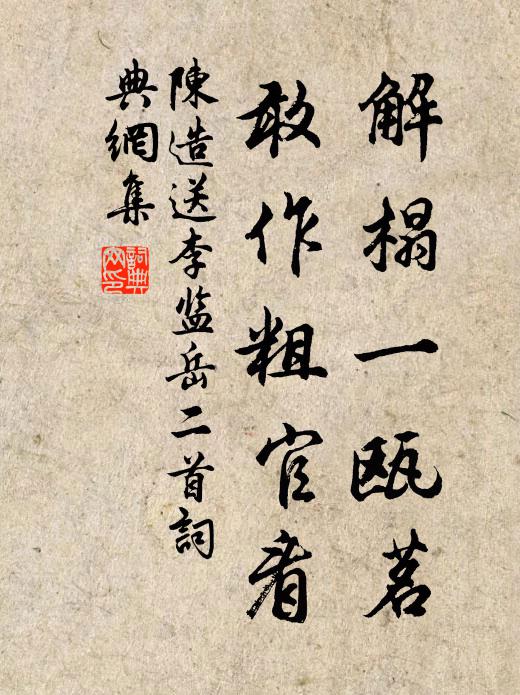 解榻一瓯茗
敢作粗官看
陳造送李监岳二首詞
典網集
詞典
网印